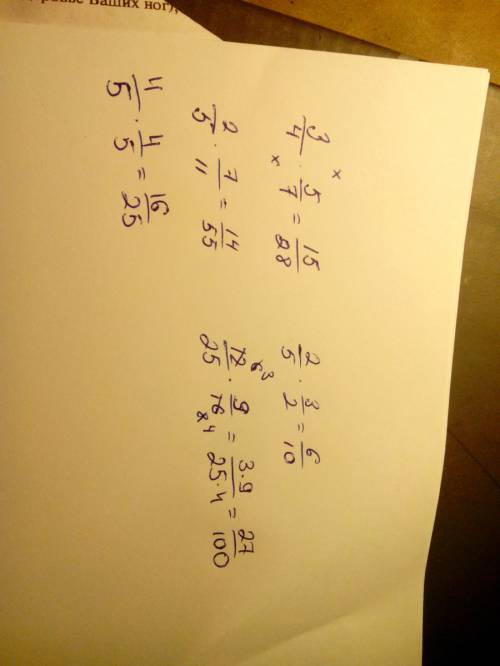 ровье Ваших ног),
3/4 · 5/7 = 15/28
2/5 · 7/11 = 14/55
4/5 · 4/5 = 16/25
2/5 · 3/2 = 6/10
12/25 · 9/16 = 3·9/25·4 = 27/100